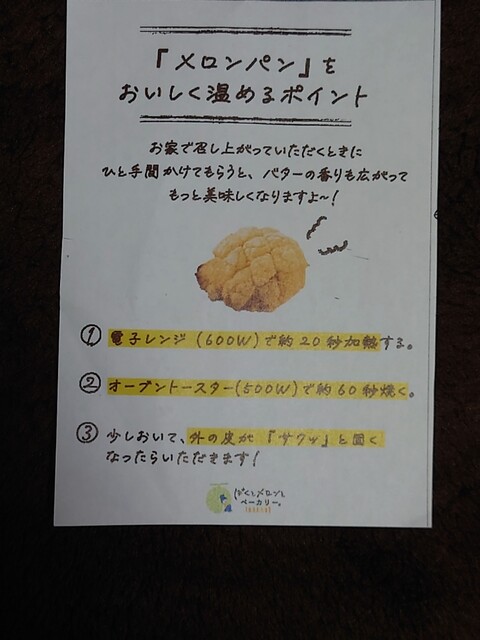 「メロンパン」を
おいしく温めるポイント
お家で召し上がっていただくときに
ひと手間かけてもらうと、バターの香りも広がって
もっと美味しくなりますよ〜！
① 電子レンジ(600W)で約20秒加熱する。
② オーブントースター(500W)で約60秒焼く。
③ 少しおいて、外の皮が『サクッ』と固く
なったらいただきます！
ぼくとメロンと
ベーカリー。